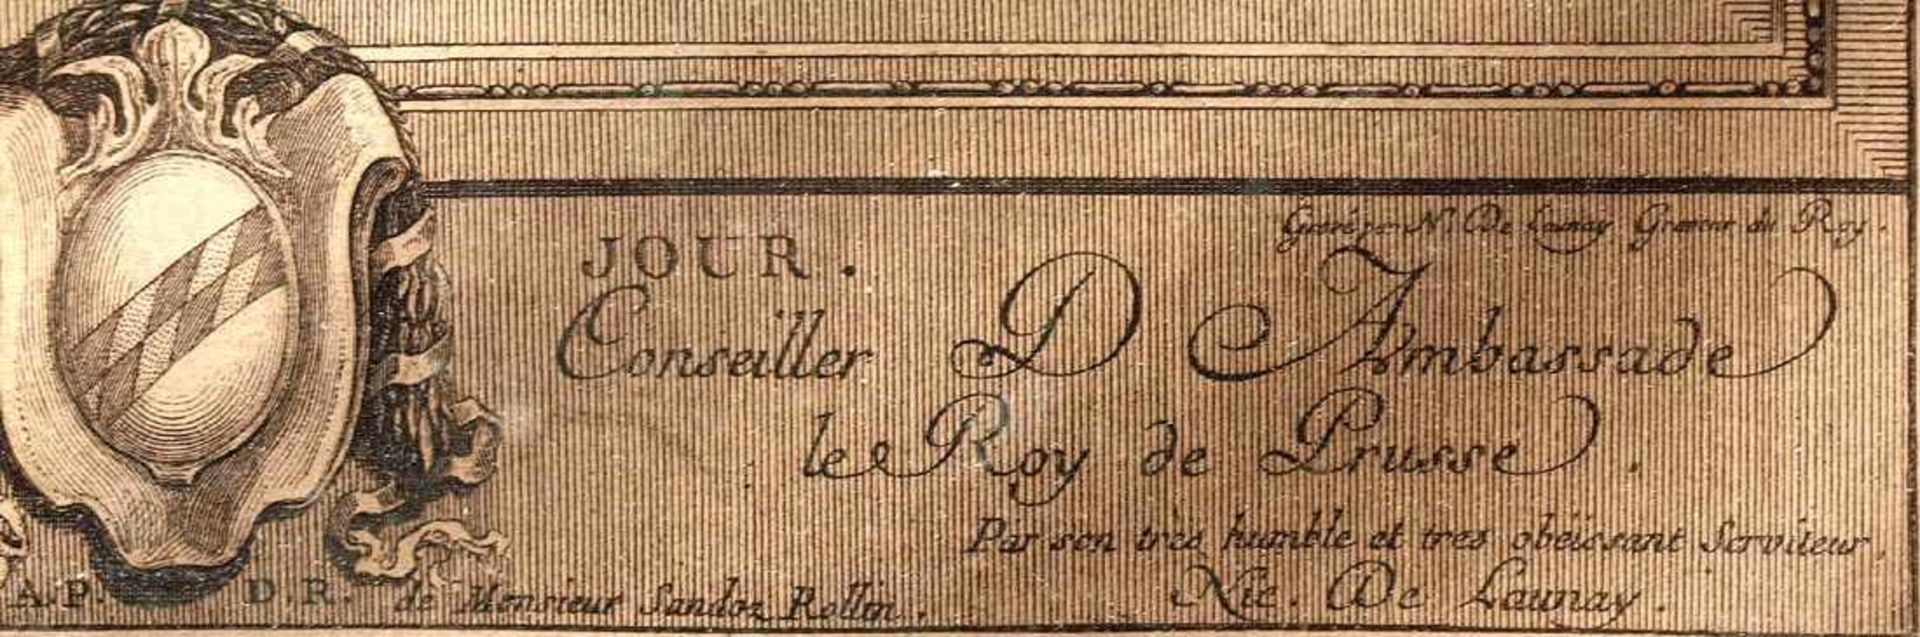 Gravé par N. De Launay Graveur du Roy.
JOUR.
Conseiller D'Ambassade
le Roy de Prusse.
Par son très humble et tres obëissant Serviteur,
Nic. De Launay.
A.P. D.R. de Monsieur Sandoz Rollin.